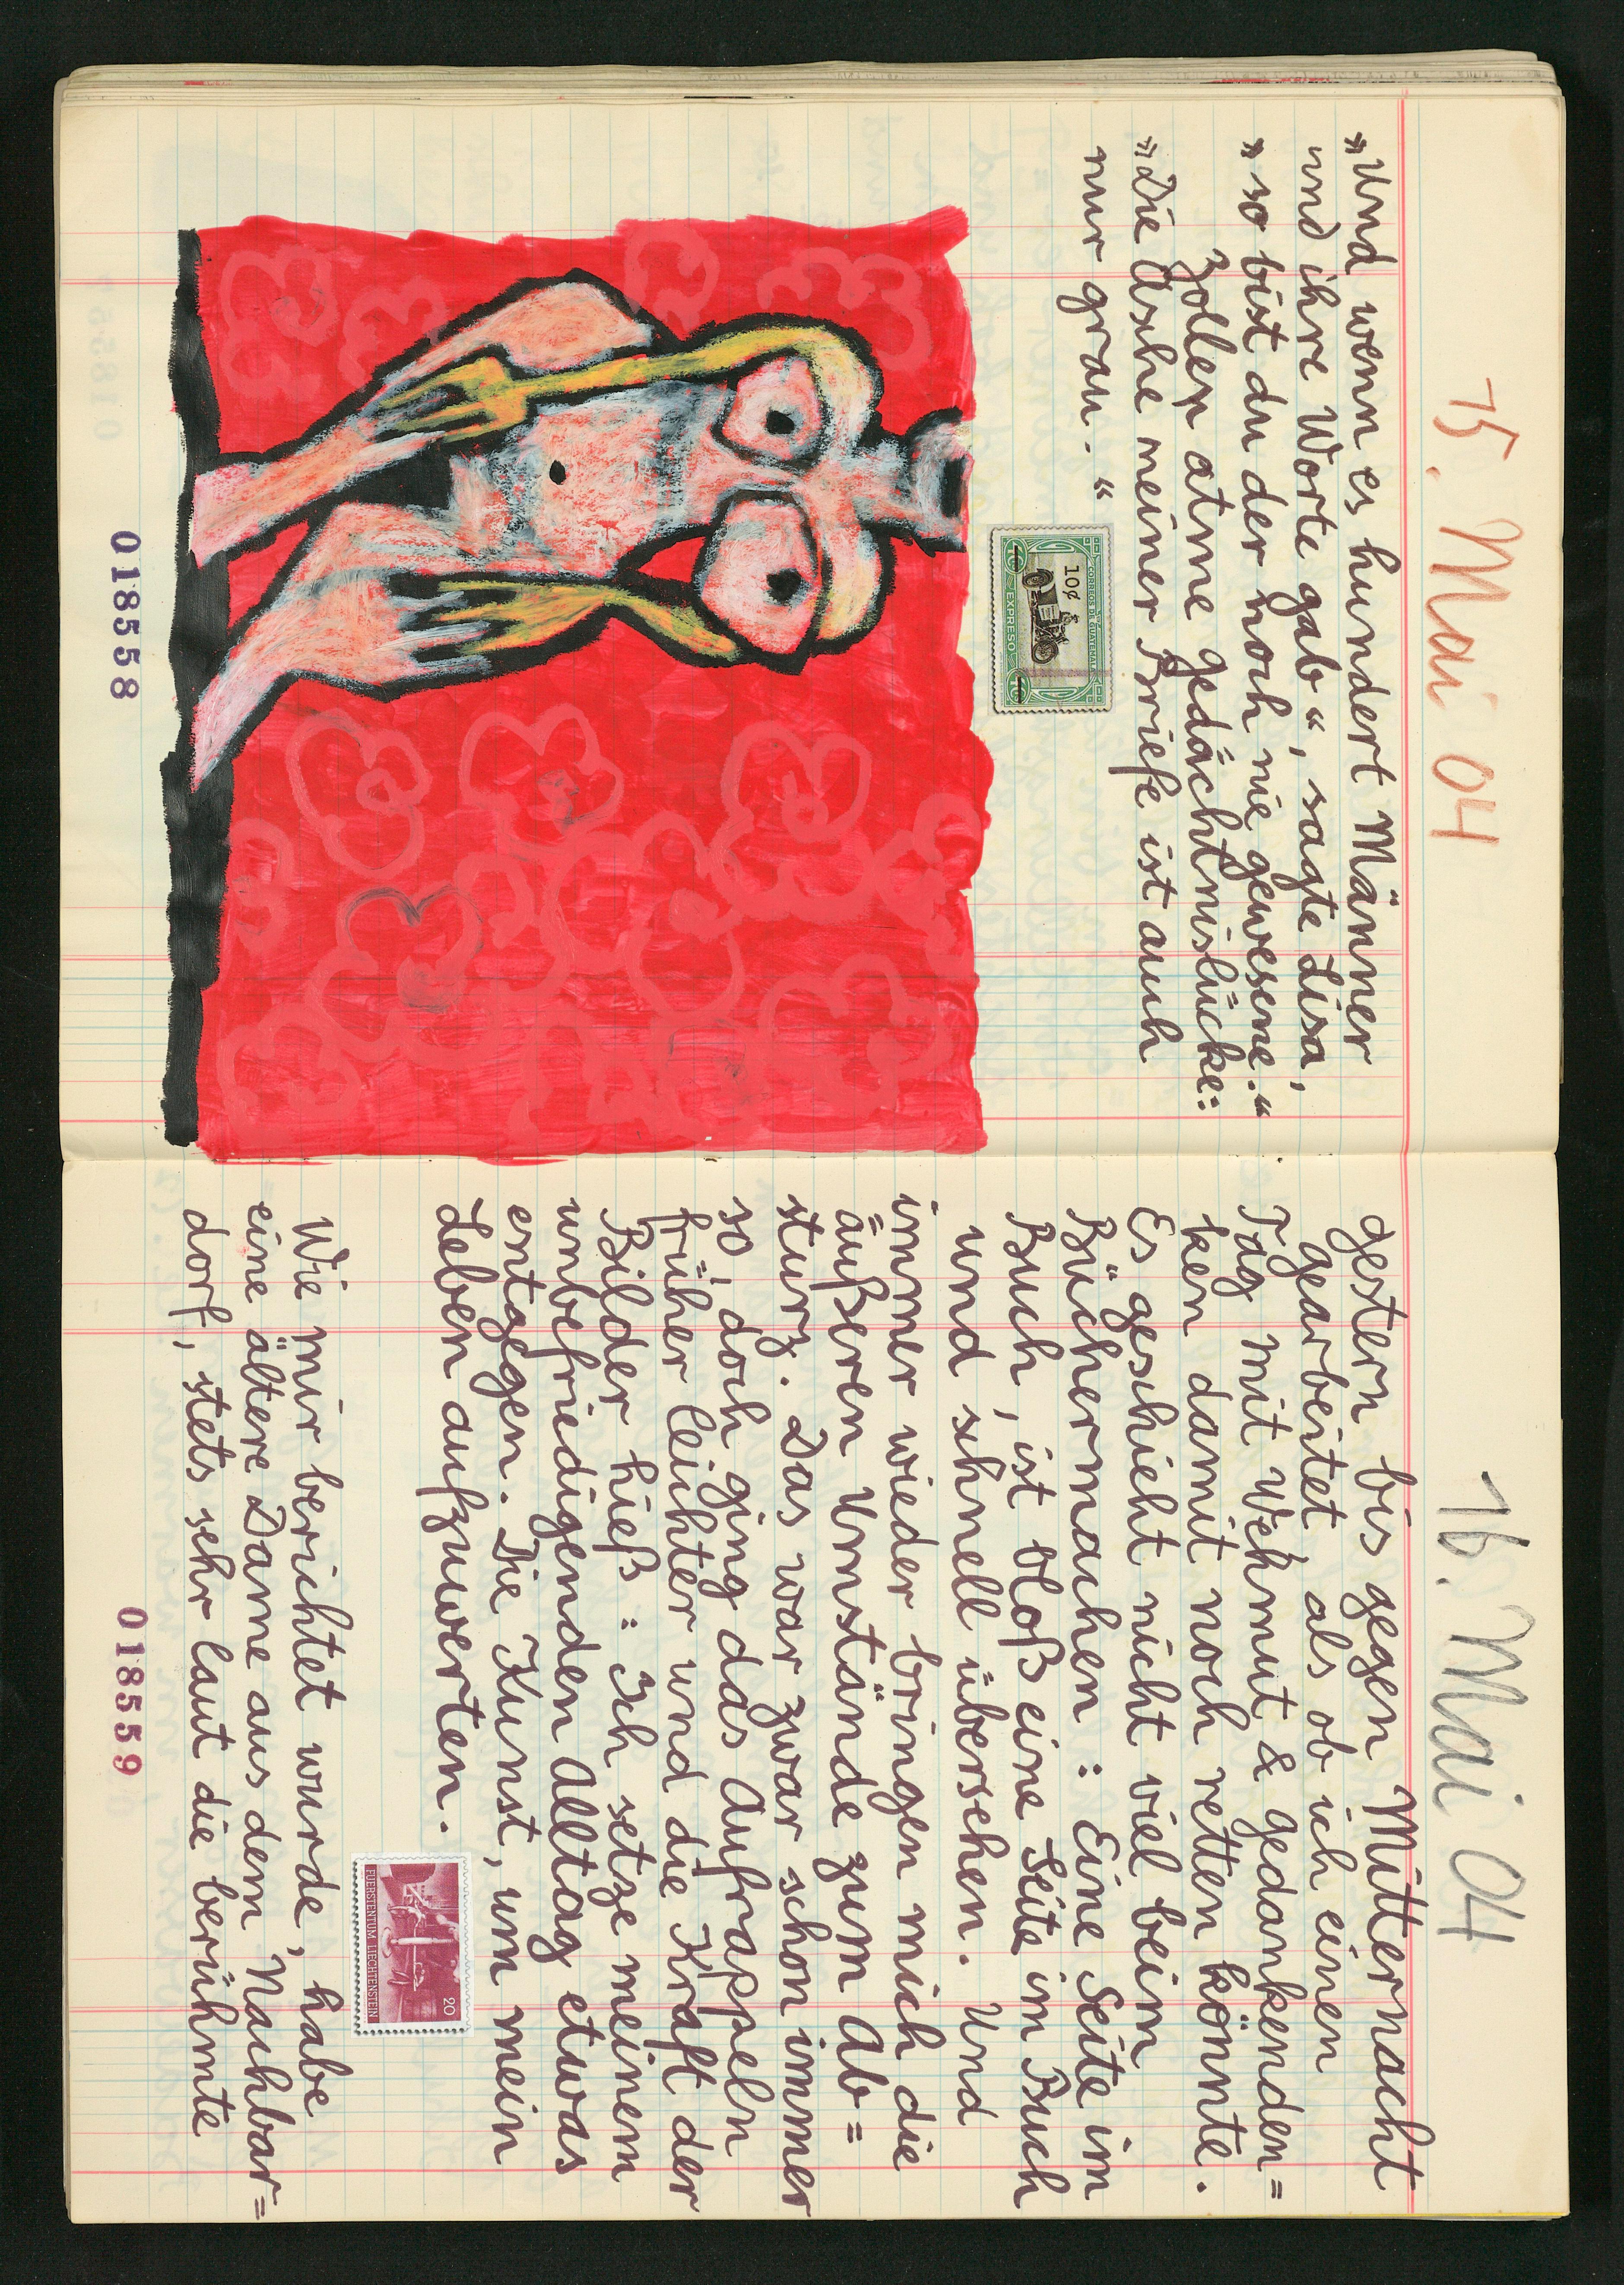 15. Mai 04
"Und wenn es hundert Männer
und ihre Worte gab", sagte Lisa,
"so bist du der noch nie gewesene."
Zoller atme gedächtnislücke:
"Die Asche meiner Briefe ist auch
nur grau."
CORREOS DE GUATEMALA
10¢
EXPRESO
018558
16. Mai 04
gestern bis gegen Mitternacht
gearbeitet, als ob ich einen
Tag mit Wehmut & gedankenden=
ken damit noch retten könnte.
Es geschieht nicht viel beim
Büchermachen: Eine Seite im
Buch, ist bloß eine Seite im Buch
und schnell übersehen. Und
immer wieder bringen mich die
äußeren Umstände zum Ab=
sturz. Das war zwar schon immer
so, doch ging das Aufrappeln
früher leichter und die Kraft der
Bilder hieß: Ich setze meinem
unbefriedigenden Alltag etwas
entgegen. Die Kunst, um mein
Leben aufzuwerten.
20
FUERSTENTUM LIECHTENSTEIN
Wie mir berichtet wurde, habe
eine ältere Dame aus dem Nachbar=
dorf, stets sehr laut die berühmte
018559